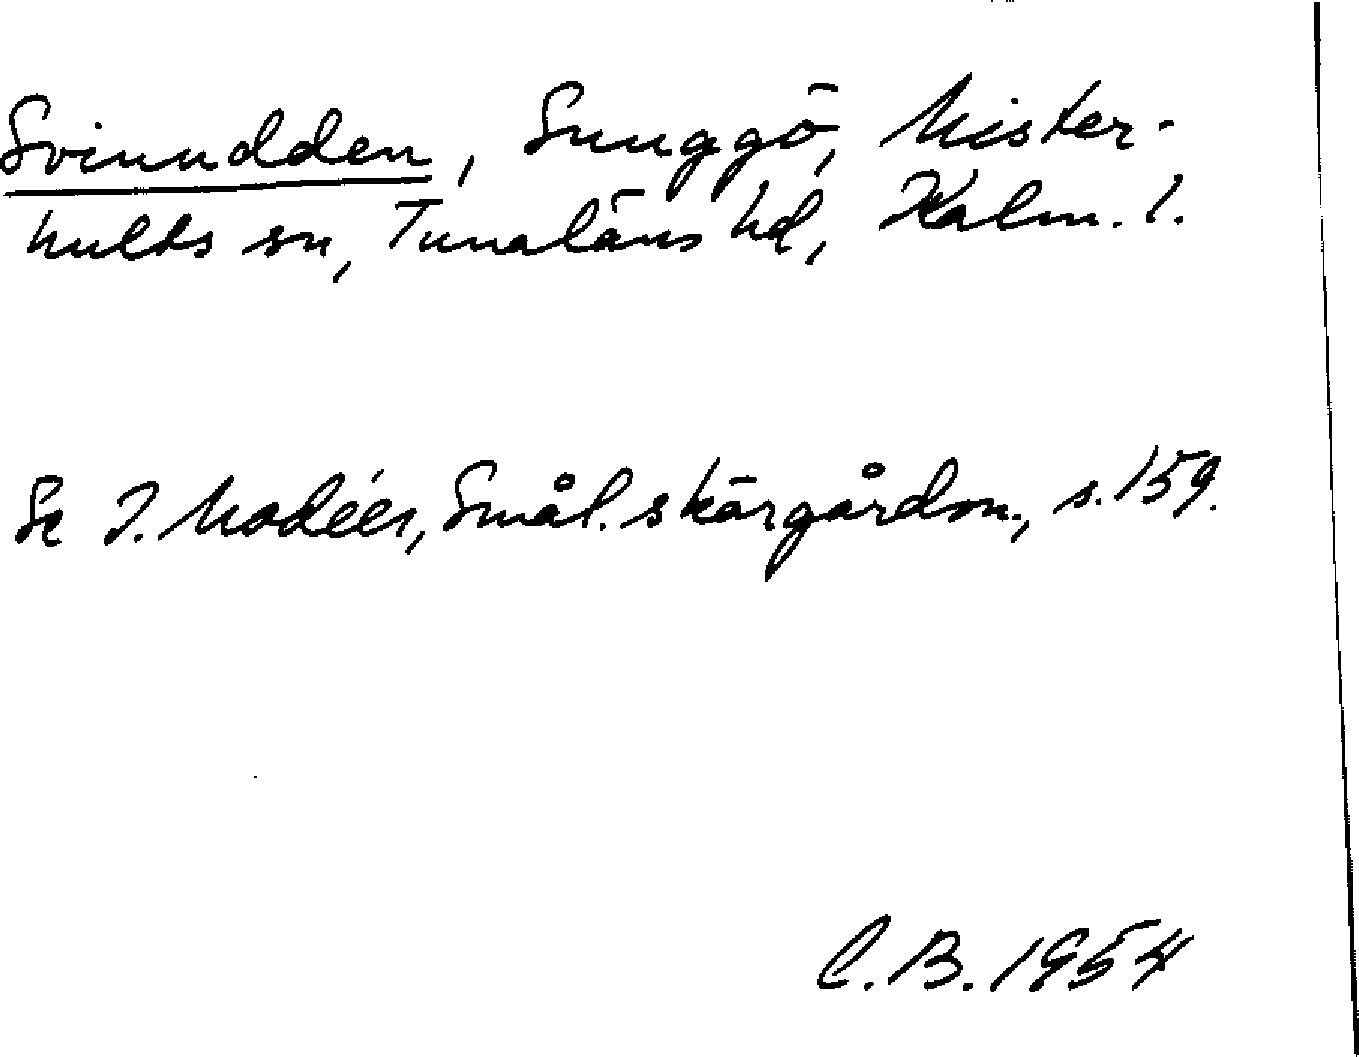 Svinudden, Snuggö, Mister-
hults sn, Tunaläns hd, Kalm. l.
Se I. Modéer, Smål. skärgårdsn., s. 159.
C.B. 1954